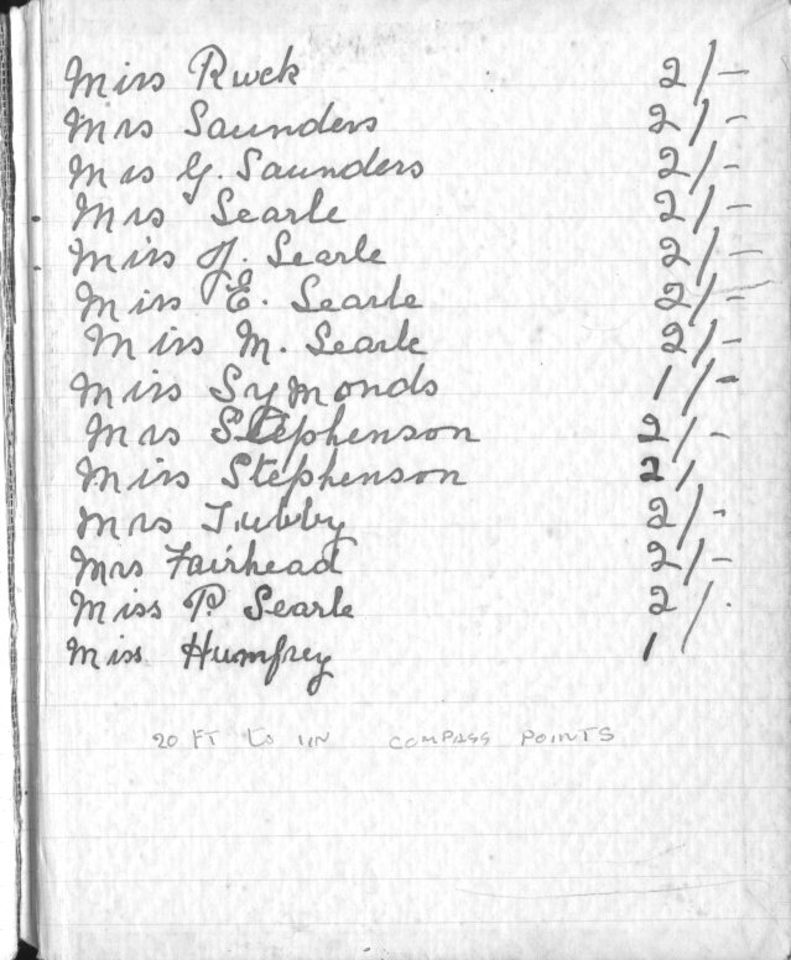 Miss Ruck 2/-
Mrs Saunders 2/-
Mrs G. Saunders 2/-
Mrs Searle 2/-
Miss J. Searle 2/-
Miss E. Searle 2/-
Miss M. Searle 2/-
Miss Symonds 1/-
Mrs Stephenson 2/-
Miss Stephenson 2/
Mrs Tubby 2/-
Mrs Fairhead 2/-
Miss P. Searle 2/.
Miss Humfrey 1/
20 FT to 1IN COMPASS POINTS